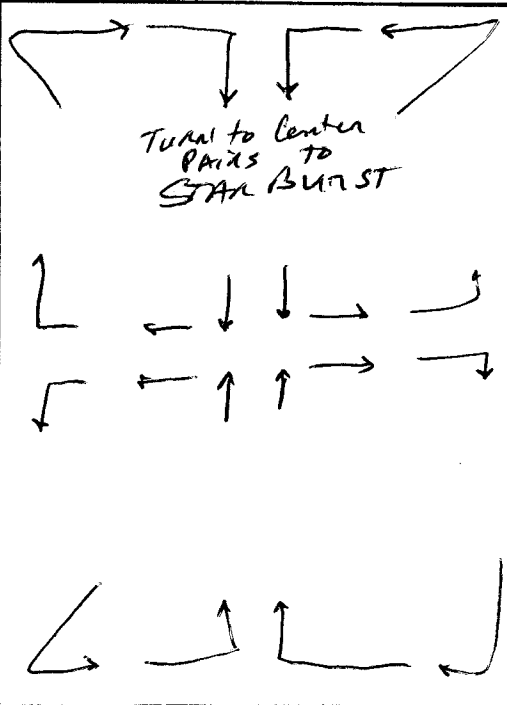 Turn to Center
PAIRS to
STAR BURST